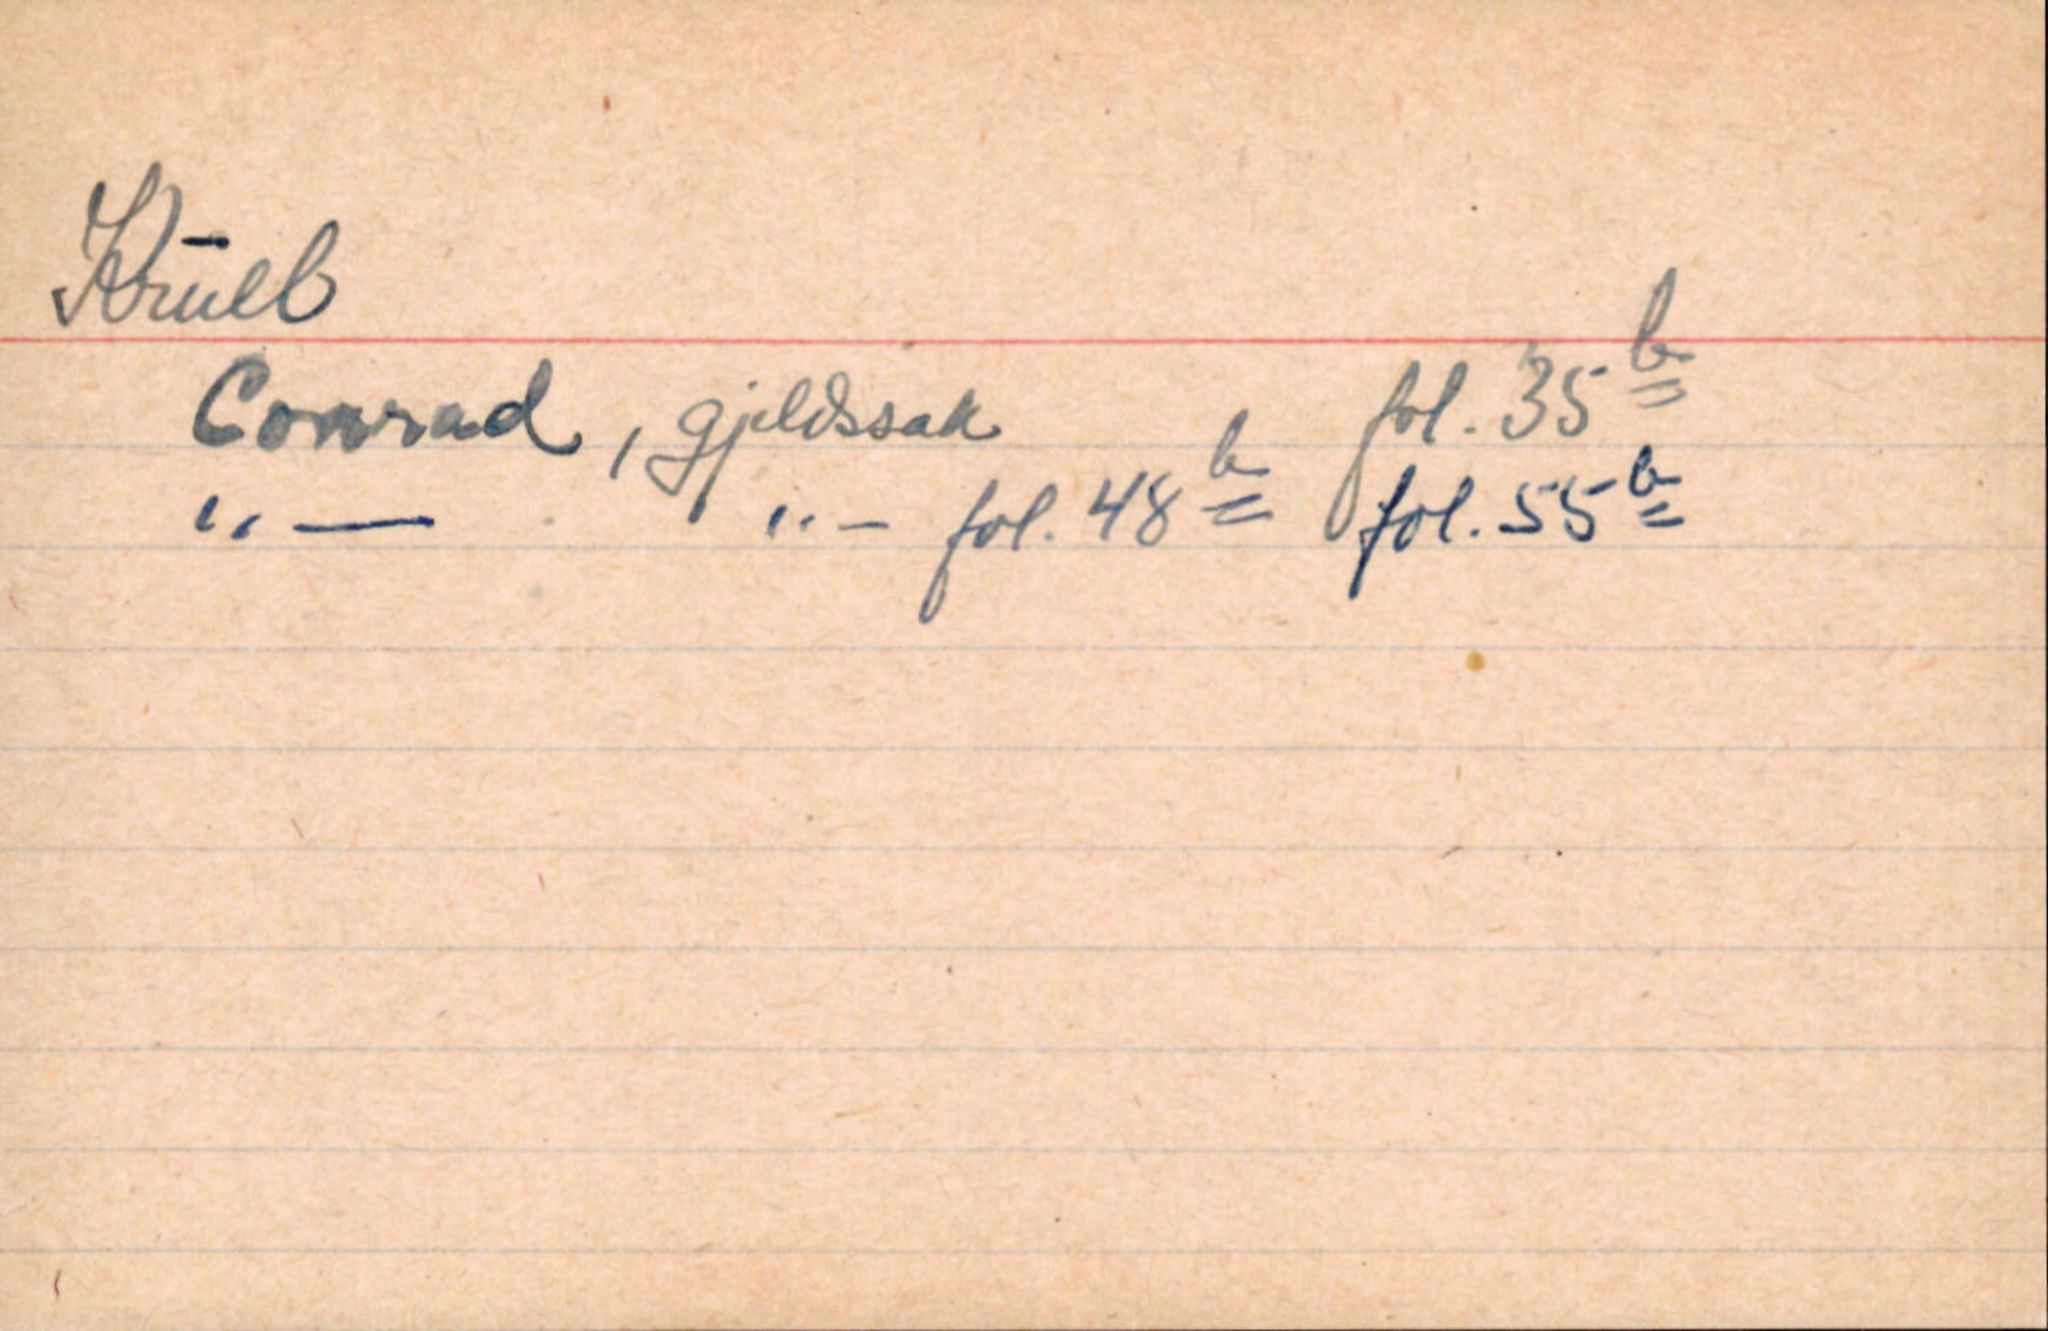 Krüeb
Conrad, gjeldssak fol. 35 b
" — " — fol. 48 b fol. 55 b